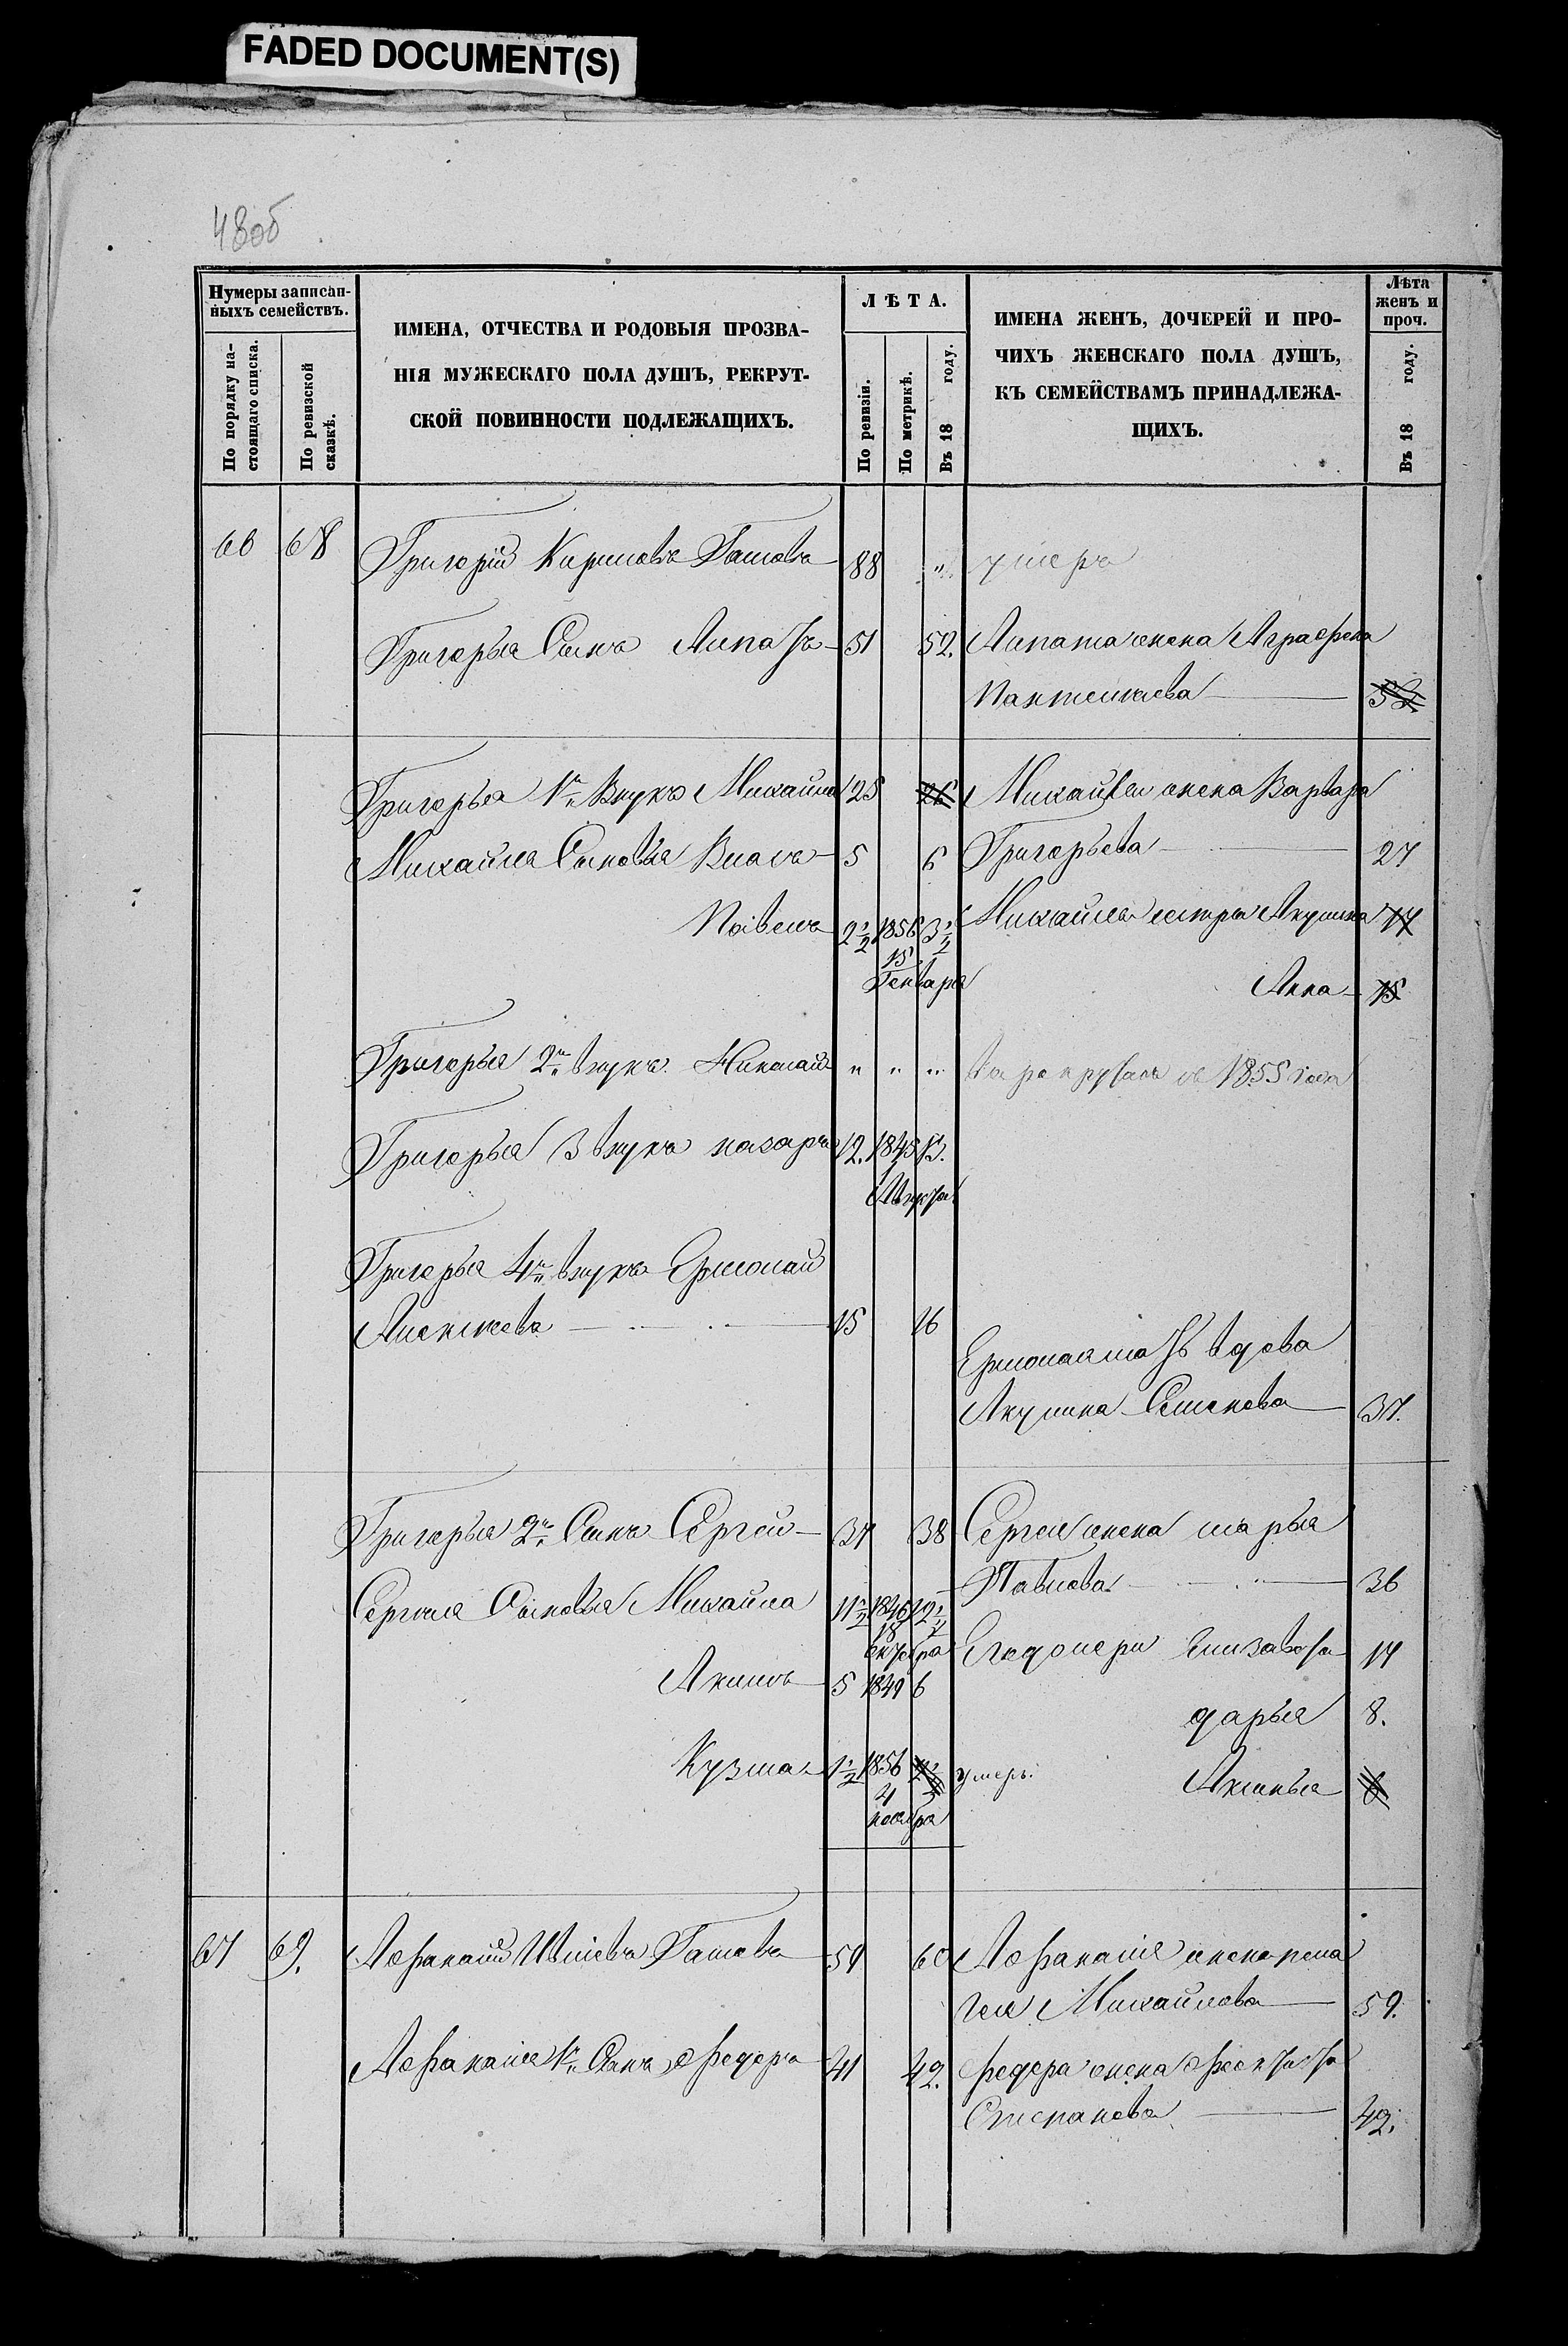 FADED DOCUMENT(S)
48об
Нумеры записан-
ныхъ семействъ.
По порядку на-
стоящаго списка.
По ревизской
сказкѣ.
ИМЕНА, ОТЧЕСТВА И РОДОВЫЯ ПРОЗВА-
НІЯ МУЖЕСКАГО ПОЛА ДУШЪ, РЕКРУТ-
СКОЙ ПОВИННОСТИ ПОДЛЕЖАЩИХЪ.
ЛѢТА.
По ревизіи.
По метрикѣ.
Въ 18 году.
ИМЕНА ЖЕНЪ, ДОЧЕРЕЙ И ПРО-
ЧИХЪ ЖЕНСКАГО ПОЛА ДУШЪ,
КЪ СЕМЕЙСТВАМЪ ПРИНАДЛЕЖА-
ЩИХЪ.
Лѣта
женъ и
проч.
Въ 18 году.
66 68 Григорій Кириловъ Гамовъ 88 " умеръ
Григорья Сынъ Липатъ 51 52. Липата жена Аграфена
Пантелиева 52.
Григорья 1й Внукъ Михаила 25 26 Михайлы жена Варвара
Михайла Сыновья Власъ 5 6 Григорьева 27
Павелъ 2½ 1856 3½ Михайлы сестры Акулина 17
15
Генваря
Анна 15
Григорья 2й внукъ Николай " " " въ рекрутахъ съ 1855 года
Григорья 3 внукъ назаръ 12. 1845 13.
Августа
Григорья 4й внукъ Ермолай
Алексѣевъ 15 16
Ермолая мать вдова
Акулина Семенова 37.
Григорья 2й Сынъ Сергей 37 38 Сергея жена марья
Павлова 36
Сергея Сыновья Михайла 11½ 1846 12½
18
октября
Его дочери Елизавета 14
Акимъ 5 1849 6
дарья 8.
Кузма 1½ 1856 2½ умеръ. Аксинья 6
4
ноября
67 69. Афанасій Ивлевъ Гамовъ 59 60 Афанасія жена пела
гея Михайлова 59.
Афанасія 1й Сынъ федоръ 41 42. федора жена феоктиста
Степанова 42.